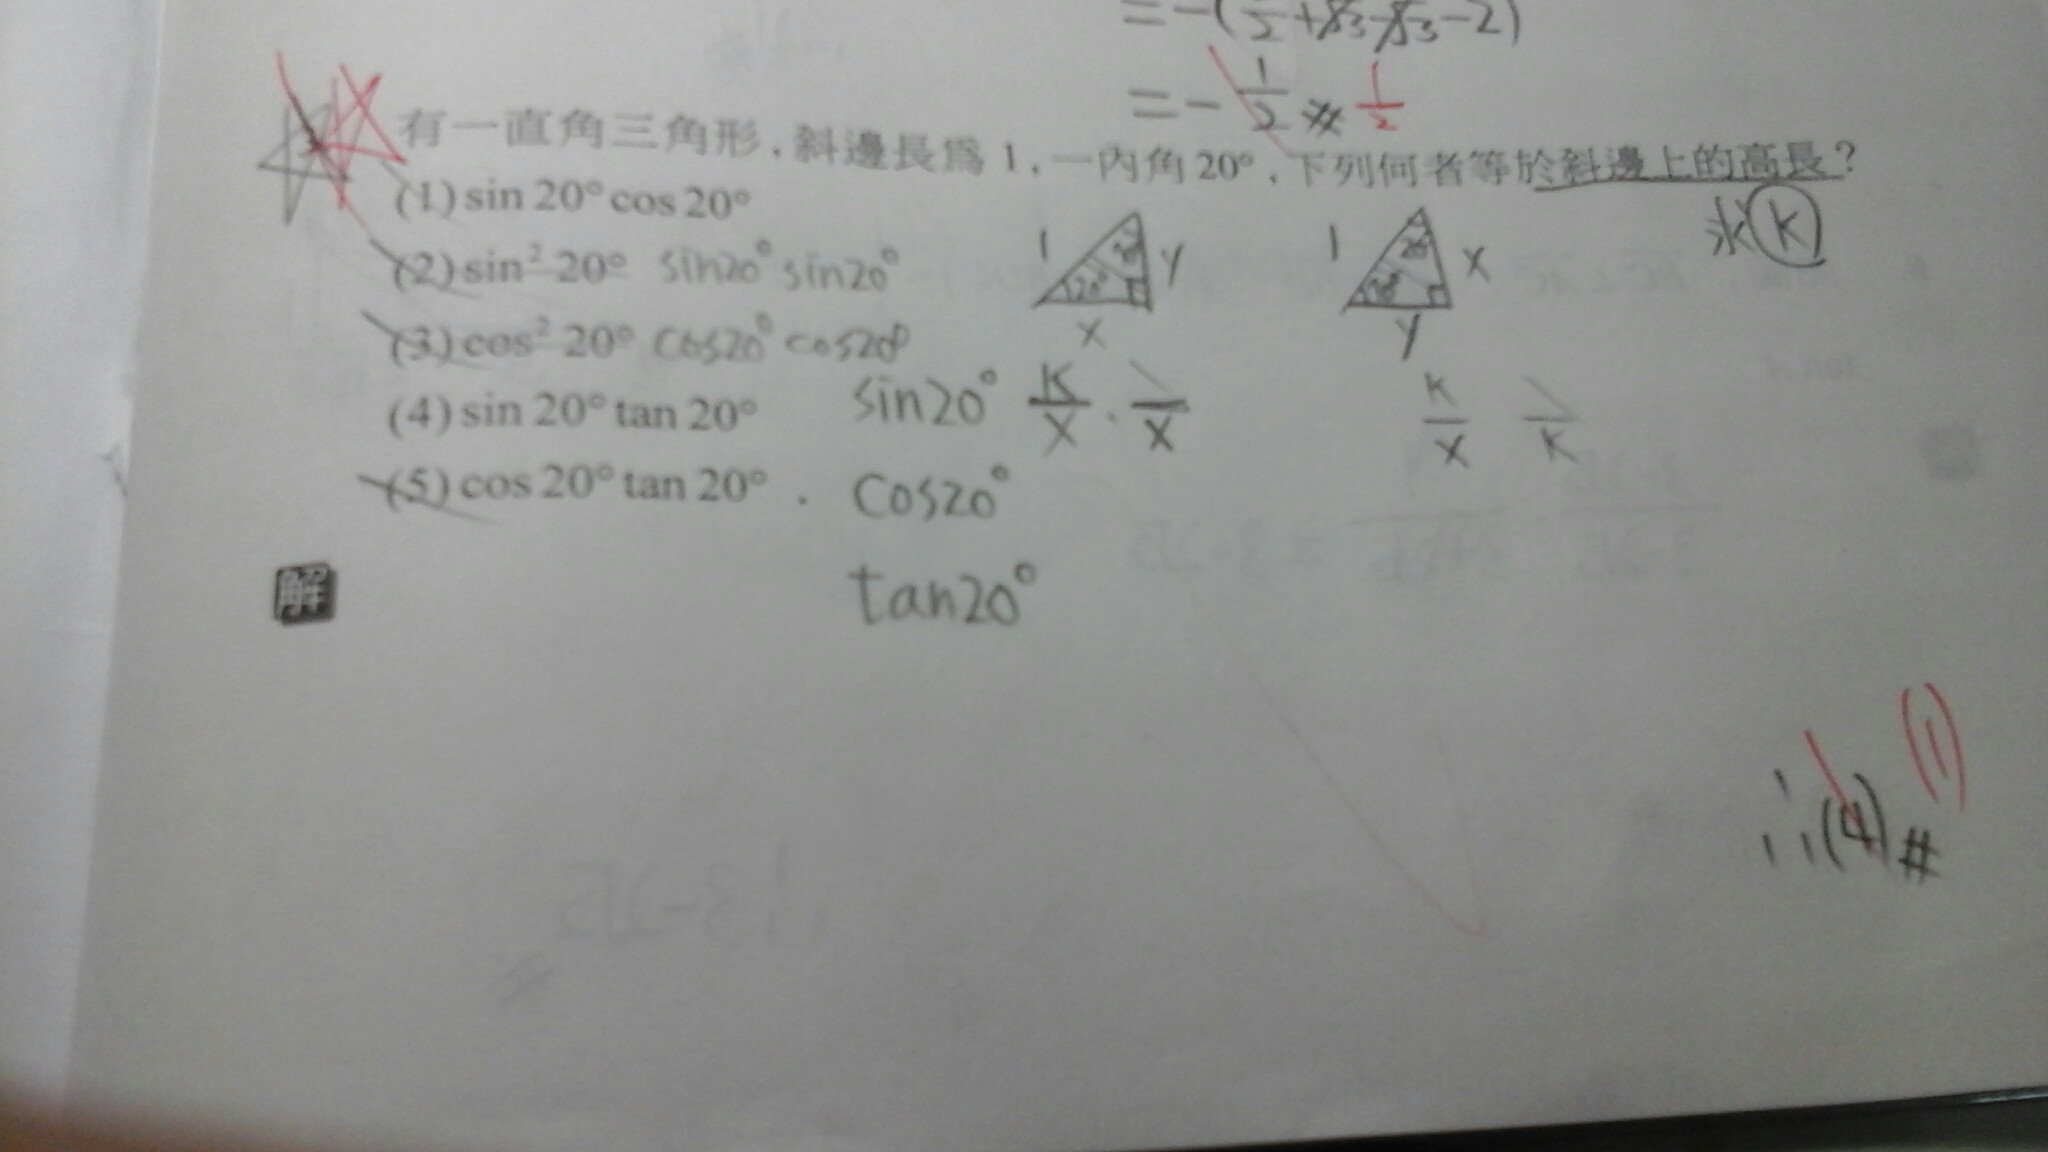 = -(1/2 + √3 - √3 - 2)
= - 1/2 # 1/2
有一直角三角形，斜邊長為 1，一內角 20°，下列何者等於斜邊上的高長？
求 k
(1) sin 20° cos 20°
(2) sin² 20° sin20° sin20°
1 20° y x
1 20° x y
(3) cos² 20° cos20° cos20°
(4) sin 20° tan 20°
sin20° K/X · /X
K/X /K
(5) cos 20° tan 20° .
cos20°
解
tan20°
(1)
∴(4)#